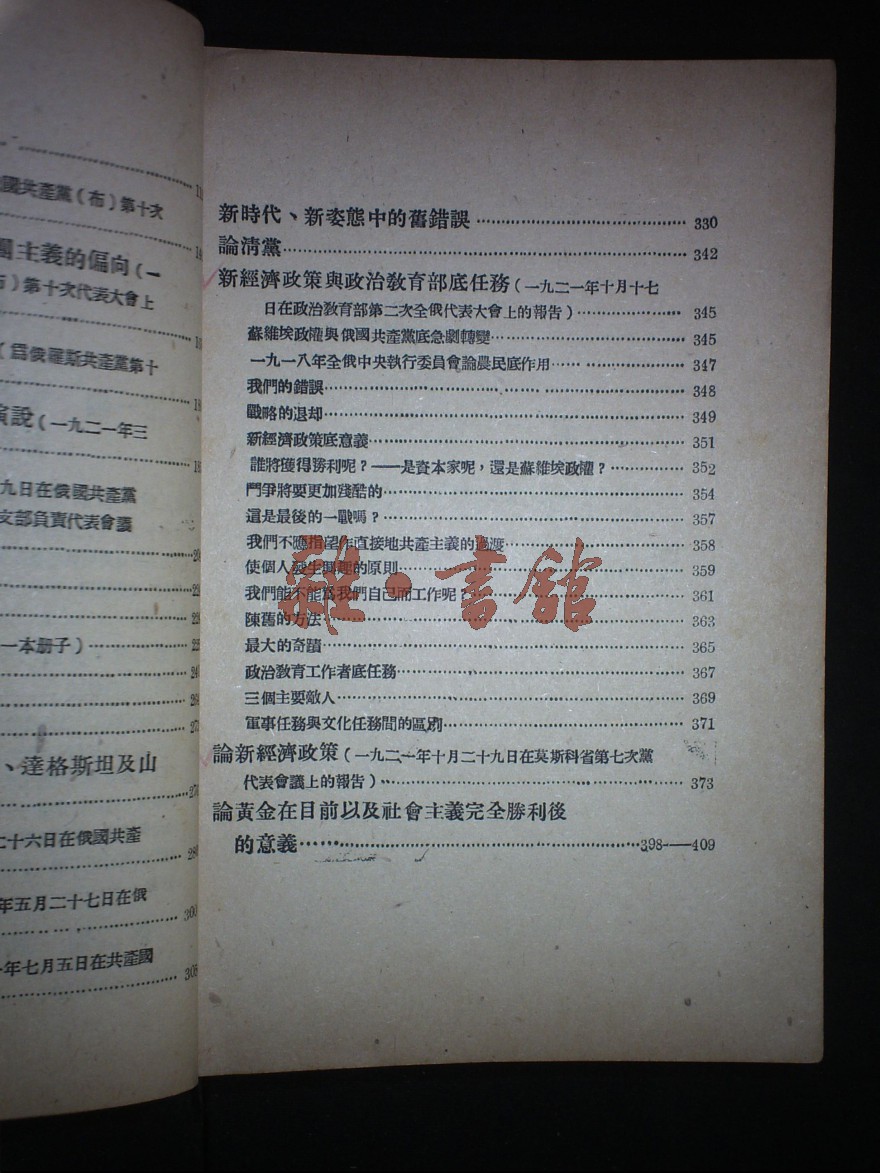 國共產黨(布)第十次
主義的偏向(一
第十次代表大會上
(爲俄羅斯共產黨第十
演說(一九二一年三
九日在俄國共產黨
支部負責代表會議
一本册子)
、達格斯坦及山
二十六日在俄國共產
280
年五月二十七日在俄
300
年七月五日在共產國
305
新時代、新姿態中的舊錯誤 330
論清黨 342
新經濟政策與政治敎育部底任務(一九二一年十月十七
日在政治敎育部第二次全俄代表大會上的報告) 345
蘇維埃政權與俄國共產黨底急劇轉變 345
一九一八年全俄中央執行委員會論農民底作用 347
我們的錯誤 348
戰略的退却 349
新經濟政策底意義 351
誰將獲得勝利呢?——是資本家呢,還是蘇維埃政權? 352
鬥爭將要更加殘酷的 354
這是最後的一戰嗎? 357
我們不應指望作直接地共產主義的過渡 358
使個人發生興趣的原則 359
我們能不能爲我們自己而工作呢? 361
陳舊的方法 363
最大的奇蹟 365
政治敎育工作者底任務 367
三個主要敵人 369
軍事任務與文化任務間的區別 371
論新經濟政策(一九二一年十月二十九日在莫斯科省第七次黨
代表會議上的報告) 373
論黃金在目前以及社會主義完全勝利後
的意義 398——409
雜·書館